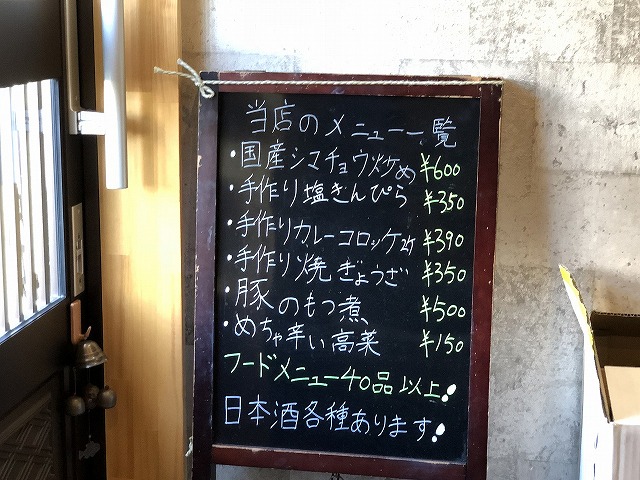 当店のメニュー一覧
・国産シマチョウ炒め ¥600
・手作り塩きんぴら ¥350
・手作りカレーコロッケ2ケ ¥390
・手作り焼ぎょうざ ¥350
・豚のもつ煮 ¥500
・めちゃ辛い高菜 ¥150
フードメニュー40品以上!
日本酒各種あります!